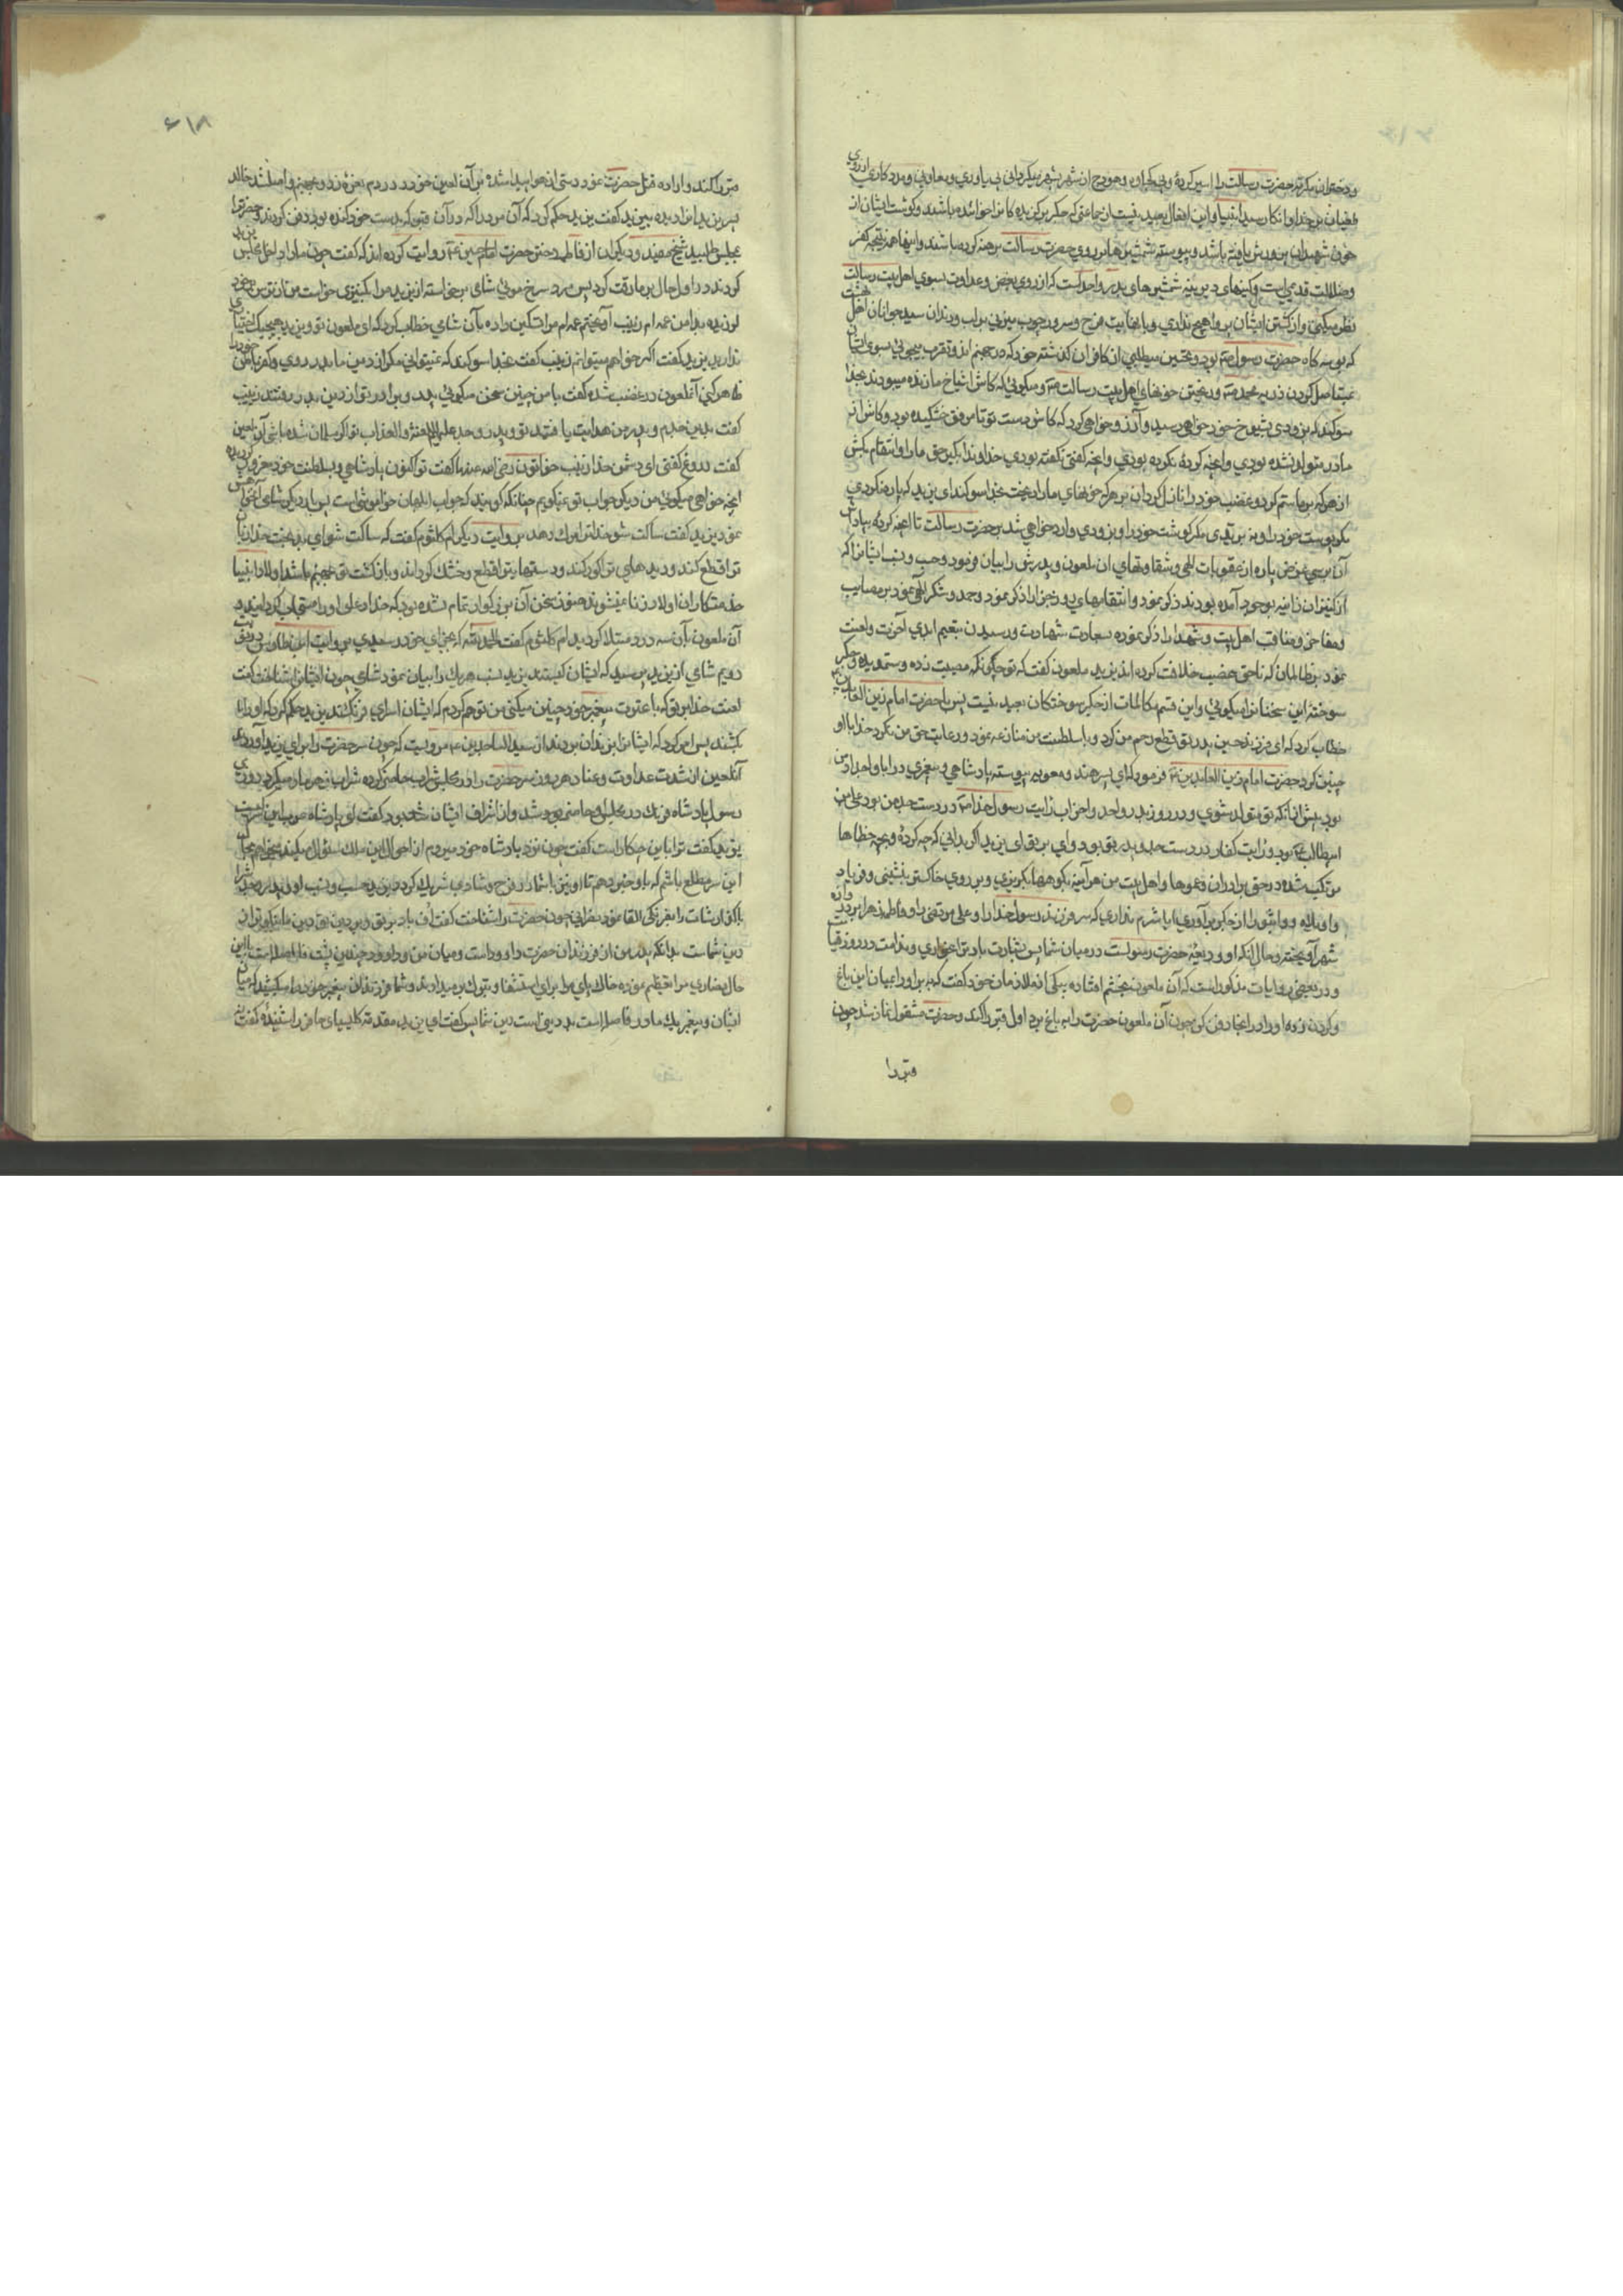 ودختران مکرم حضرت رسالت را اسیر کردهٔ وبی حجاب وهودج از شهر بشهر میگردانی بی یاوری ومعاونی ومدد کاری از روی
طغیان بر خدا وانکار سید انبیا واین افعال بعید نیست از جماعتی که جکر برکزیده کانرا خوائده باشند وکوشت ایشان از
خون شهیدان پرورش یافته باشد وپیوسته شمشیرها بر روی حضرت رسالت برهنه کرده باشند واینها همه نتیجه کفر
وضلالت قدیم است وکینهای دیرینه شمشیرهای بدر واحد است که از روی بغض وعداوت بسوی اهل بیت رسالت
نظر میکنی واز کشتن ایشان پروا هیچ نداری وبا نهایت فرح وسرور چوب میزنی بر لب ودندان سید جوانان اهل بهشت
که بوسه کاه حضرت رسول بود وتحسین میطلبی از کافران کذشته خود که در جهنم اند وتقرب میجوئی بسوی ایشان
بمستاصل کردن ذریه محمد وریختن خونهای اهل بیت رسالت ومیکوئی که کاش اشیاخ ما زنده میبودند بخدا
سوکند که بزودی بشیوخ خود خواهی رسید وآرزو خواهی کرد که کاش دست تو تا مرفق خشکیده بود وکاش از
مادر متولد نشده بودی وآنچه کردهٔ نکرده بودی وآنچه کفتی نکفته بودی خداوندا بکیر حق مارا وانتقام بکش
از هر که بر ما ستم کرد وغضب خود را نازل کردان بر هر که خونهای مارا ریخت بخدا سوکند ای یزید که پاره نکردی
مکر پوست خود را ونبریدی مکر کوشت خود را وبزودی وارد خواهی شد بر حضرت رسالت تا آنچه کردهٔ بیاد آری
از کنیزان زانیه بوجود آمده بودند ذکر نمود وانتقامهای روز جزا را ذکر نمود وحمد وشکر الهی نمود بر مصایب
ومفاخر ومناقب اهل بیت وشهدا را ذکر نموده سعادت شهادت ورسیدن بنعیم ابدی آخرت ولعنت
نمود بر ظالمان که ناحق غصب خلافت کرده اند یزید ملعون کفت که تو چکونکه مصیبت زده وستمدیده وجکر
سوخته این سخنانرا میکوئی واین قسم مکالمات از جکر سوختکان بعید نیست پس با حضرت امام زین العابدین
خطاب کرد که ای فرزند حسین پدر تو قطع رحم من کرد وبا سلطنت من منازعه نمود ورعایت حق من نکرد خدا با او
چنین کرد حضرت امام زین العابدین فرمود که ای پسر هند ومعویه پیوسته پادشاهی وپیغمبری در آبا واجداد من
بود پیش از آنکه تو متولد شوی ودر روز بدر واحد واحزاب رایت رسول خدا در دست جد من بود علی بن
ابیطالب بود ورایت کفار در دست جد وپدر تو بود وای بر تو ای یزید اکر بدانی که چه کردهٔ وبچه خطاها
مرتکب شده در حق برادران وعموها واهل بیت من هرآینه بکوهها بکریزی وبر روی خاکستر بنشینی وفریاد
واویلاه وواثبوراه از جکر برآوری آیا شرم نداری که سر فرزند رسول خدا را وعلی مرتضی را وفاطمه زهرا بر در دروازه
شهر آویخته وحال آنکه او ودیعهٔ حضرت رسولست در میان شما پس بشارت باد ترا بخواری وندامت در روز قیامت
ودر بعضی روایات مذکور است که آن ملعون بخشم افتاده بیکی از ملازمان خود کفت که ببر او را بمیان این باغ
وکردن زده او را در آنجا دفن کن چون آن ملعون حضرت را به باغ برد اول قبر را کند وحضرت مشغول نماز شد چون
قبر را
۶۱۸
قبر را کند واراده قتل حضرت نمود دستی از هوا پیدا شده بر آن لعین خورد در دم نعره زد وبجهنم واصل شد خالد
پسر یزید اینرا دیده بیزید کفت یزید حکم کرد که آن مرد را که در آن قبر که بدست خود کنده بود دفن کردند وحضرترا
بمجلس طلبید شیخ مفید ودیکران از فاطمه دختر حضرت امام حسین روایت کرده اند که کفت چون مارا داخل مجلس یزید
کردند در اول حال بر ما رقت کرد پس مرد سرخ موئی شامی برخواسته از یزید مرا بکنیزی خواست من از ترس برخود
لرزیده بدامن عمه ام زینب آویختم عمه ام مرا تسکین داده بآن شامی خطاب کرد که ای ملعون تو ویزید هیچیک اختیاری
ندارید یزید کفت اکر خواهم میتوانم زینب کفت بخدا سوکند که نمیتوانی مکر آنکه از دین ما بدر روی وکفر باطن خود را
ظاهر کنی آنملعون در غضب شده کفت با من چنین سخن میکوئی پدر وبرادر تو از دین بدر رفتند زینب
کفت بدین جدم وپدر من هدایت یافتید تو وپدر وجد علیهم اللعنة والعذاب تو اکر مسلمان شده باشی آن لعین
کفت دروغ کفتی ای دشمن خدا زینب خواتون رضی الله عنها کفت تو اکنون پادشاهی وبسلطنت خود مغرور کردیدهٔ
آنچه خواهی میکوئی من دیکر جواب تو نمیکویم چنانکه کویند که جواب ابلهان خواموشی است پس بار دیکر شامی آنخواهش
نمود یزید کفت ساکت شو خدا ترا مرک دهد بروایت دیکر ام کلثوم کفت که ساکت شو ای بدبخت خدا زبان
ترا قطع کند ودیدهای ترا کور کند ودستهایت را قطع وخشک کرداند وبازکشت تو بجهنم باشد اولاد انبیا
خدمتکاران اولاد زنا نمیشوند هنوز سخن آن بزرکوار تمام نشده بود که خدا دعای او را مستجاب کردانید و
آن ملعون بآن سه درد مبتلا کردید ام کلثوم کفت الحمد لله که بجزای خود رسیدی بروایت ابن طاوس در نوبت
دویم شامی از یزید پرسید که ایشان کیستند یزید نسب هر یک را بیان نمود شامی چون ایشانرا شناخت کفت
لعنت خدا بر تو که با عترت پیغمبر خود چنین میکنی من توهم کردم که ایشان اسرای فرنک اند یزید حکم کرد که او را
بکشند پس امر کرد که ایشانرا بزندان بردند از سید الساجدین مرویست که چون سر حضرت را برای یزید آوردند
آنلعین از شدت عداوت وعناد هر روز سر حضرت را در مجلس شراب حاضر کرده شراب زهر مار میکرد روزی
رسول پادشاه فرنک در مجلس او حاضر بود شد واز اشراف ایشان شخصی بود کفت ای پادشاه عرب این سر کیست
یزید کفت ترا باین چکار است کفت چون نزد پادشاه خود میروم از احوال این ملک سؤال میکند میخواهم بحال
این سر مطلع باشم که باو خبر دهم تا او نیز با شما در فرح وشادی شریک کردد یزید حسب ونسب او وپدر وجدش را
دین شماست بدانکه پدر من از فرزندان حضرت داود است ومیان من وداود چندین پشت فاصله است با این
حال نصاری مرا تعظیم نموده خاک پای مرا برای استشفا وتبرک برمیدارند وشما فرزندان پیغمبر خود را میکشید که میان
ایشان وپیغمبر یک مادر فاصله است بد دینی است دین شما پس کفت ای یزید مقدمهٔ کلیسیای حافر را شنیدهٔ کفت نه